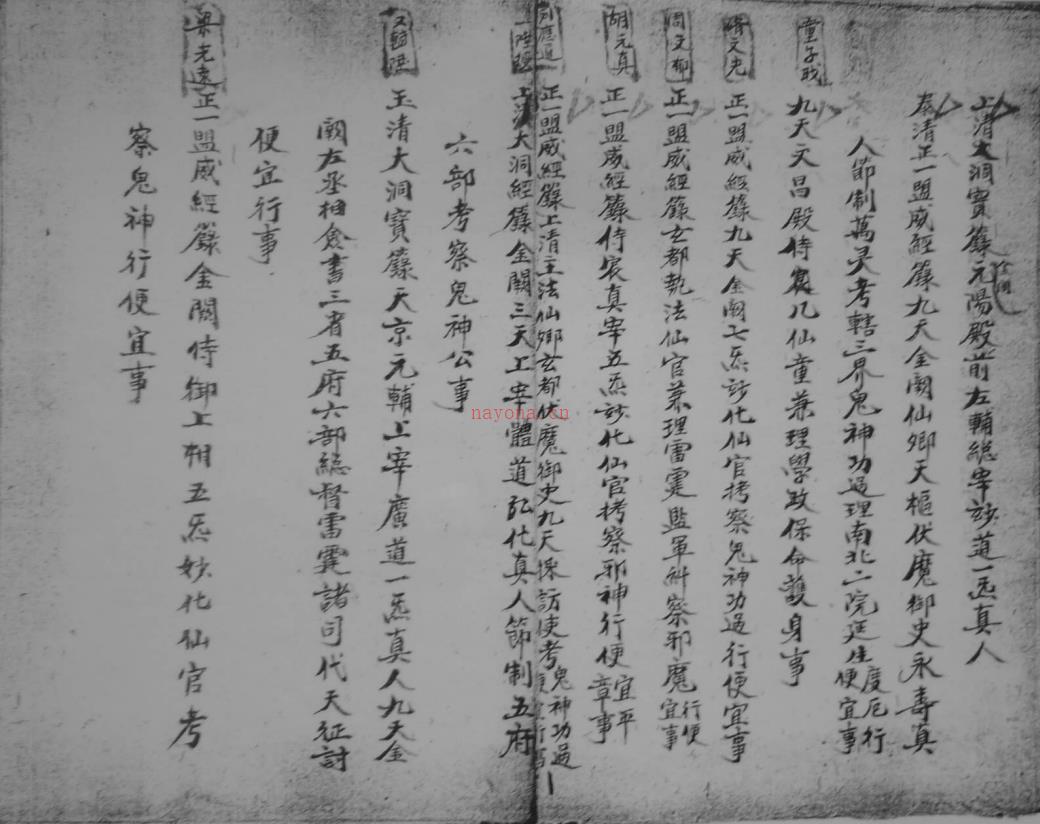 上清大洞寶籙元陽殿前左輔總宰妙道一炁真人
泰清正一盟威經籙九天金闕仙卿天樞伏魔御史永壽真
人節制萬灵考轄三界鬼神功過理南北二院延生度厄行便宜事
童子戏
九天文昌殿侍宸九仙童兼理學政保命護身事
文光
正一盟威經籙九天金闕七炁妙化仙官考察鬼神功過行便宜事
周文郁
正一盟威經籙玄都執法仙官兼理雷霆監軍糾察邪魔行便宜事
胡元真
正一盟威經籙侍宸真宰五炁妙化仙官考察邪神行便宜平章事
應
正一盟威經籙上清主法仙卿玄都伏魔御史九天採訪使考鬼神功過
上清大洞經籙金闕三天上宰體道弘化真人節制五府
六部考察鬼神公事
玉清大洞寶籙天京元輔上宰廣道一炁真人九天金
闕左丞相僉書三省五府六部總督雷霆諸司代天征討
便宜行事
梁光遠
正一盟威經籙金闕侍御上相五炁妙化仙官考
察鬼神行便宜事
nayona.cn